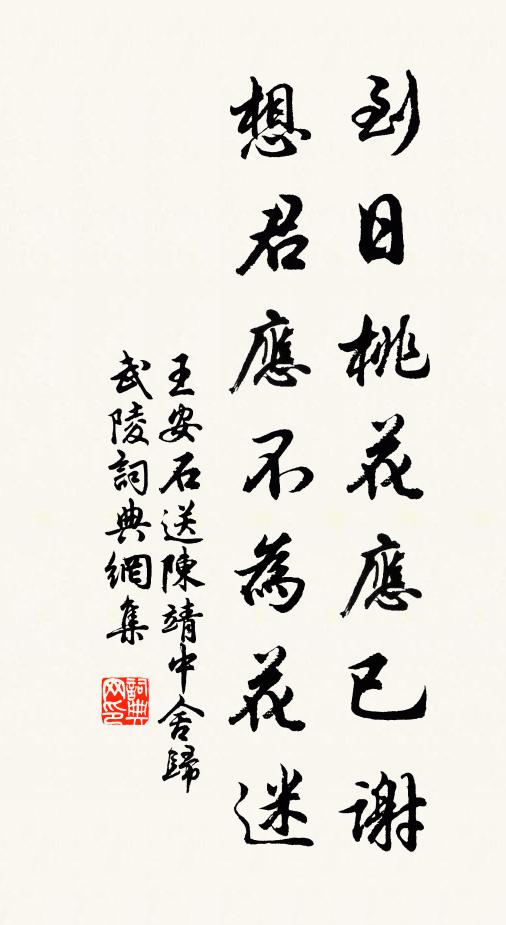 到日桃花應已謝
想君應不為花迷
王安石送陳靖中舍歸
武陵詞典網集
詞典
网印